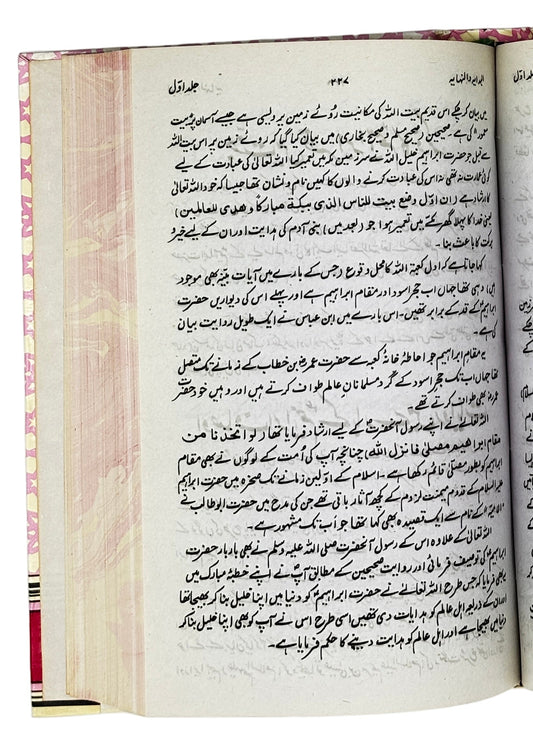 البدایہ والنہایہ ۲۲۷ جلد اوّل
میں بیان کر چکے اس قدیم بیت اللہ کی مکانیت روئے زمین پر ویسی ہے جیسے آسمان پر بیت
معمور کی ہے۔ صحیحین (صحیح مسلم و صحیح بخاری) میں بیان کیا گیا کہ روئے زمین پر اس بیت اللہ
سے قبل جو حضرت ابراہیم خلیل اللہ نے سرزمین مکہ میں تعمیر کیا اللہ تعالیٰ کی عبادت کے لیے
کوئی عمارت نہ تھی نہ اس کی عبادت کرنے والوں کا کہیں نام و نشان تھا جیسا کہ خود اللہ تعالیٰ
کا ارشاد ہے (ان اوّل وضع بیت للناس الذی ببکة مبارکا وھدی للعالمین)
یعنی خدا کا پہلا گھر مکّے میں تعمیر ہوا جو (بعد میں) بنی آدم کی ہدایت اور ان کے لیے خیر و
برکت کا باعث بنا۔
کہا جاتا ہے کہ اول کعبۃ اللہ کا محل وقوع (جس کے بارے میں آیات بیّنہ بھی موجود
ہیں) وہی تھا جہاں اب حجر اسود اور مقام ابراہیم ہے اور پہلے اس کی دیواریں حضرت
ابراہیمؑ کے قد کے برابر تھیں۔ اس بارے میں ابن عباس نے ایک طویل روایت بیان
کی ہے۔
یہ مقام ابراہیم جو احاطۂ خانۂ کعبہ سے حضرت عمرؓ بن خطاب کے زمانے تک متصل
تھا جہاں اب تک حجر اسود کے گرد مسلمانانِ عالم طواف کرتے ہیں اور وہیں خود حضرت
عمرؓ بھی طواف کرتے تھے۔
اللہ تعالیٰ نے اپنے رسول آنحضرتؐ کے لیے ارشاد فرمایا تھا (لو اتخذنا من
مقام ابراھیم مصلی فانزل اللہ) چنانچہ آپ کی اُمت کے لوگوں نے بھی مقام
ابراہیم کو بطور مصلّٰی قائم رکھا ہے۔ اسلام کے اوّلین زمانے تک صخرہ میں حضرت ابراہیم
علیہ السلام کے قدوم میمنت لزوم کے کچھ آثار باقی تھے جن کی مدح میں حضرت ابوطالب نے
کے نام سے ایک قصیدہ بھی کہا تھا جو اب تک مشہور ہے۔
اللہ تعالیٰ کے علاوہ اس کے رسول آنحضرت صلی اللہ علیہ وسلم نے بھی بار بار حضرت
ابراہیمؑ کی توصیف فرمائی اور روایت صحیحین کے مطابق آپؐ نے اپنے خطبۂ مبارک میں
یہ بھی فرمایا کہ جس طرح اللہ تعالیٰ نے حضرت ابراہیمؑ کو دنیا میں اپنا خلیل بنا کر بھیجا تھا
اور ان کے ذریعہ اہل عالم کو ہدایات دی تھیں اسی طرح اس نے آپ کو بھی اپنا خلیل بنا کر
دنیا میں بھیجا ہے اور اہل عالم کو ہدایت دینے کا حکم فرمایا ہے۔